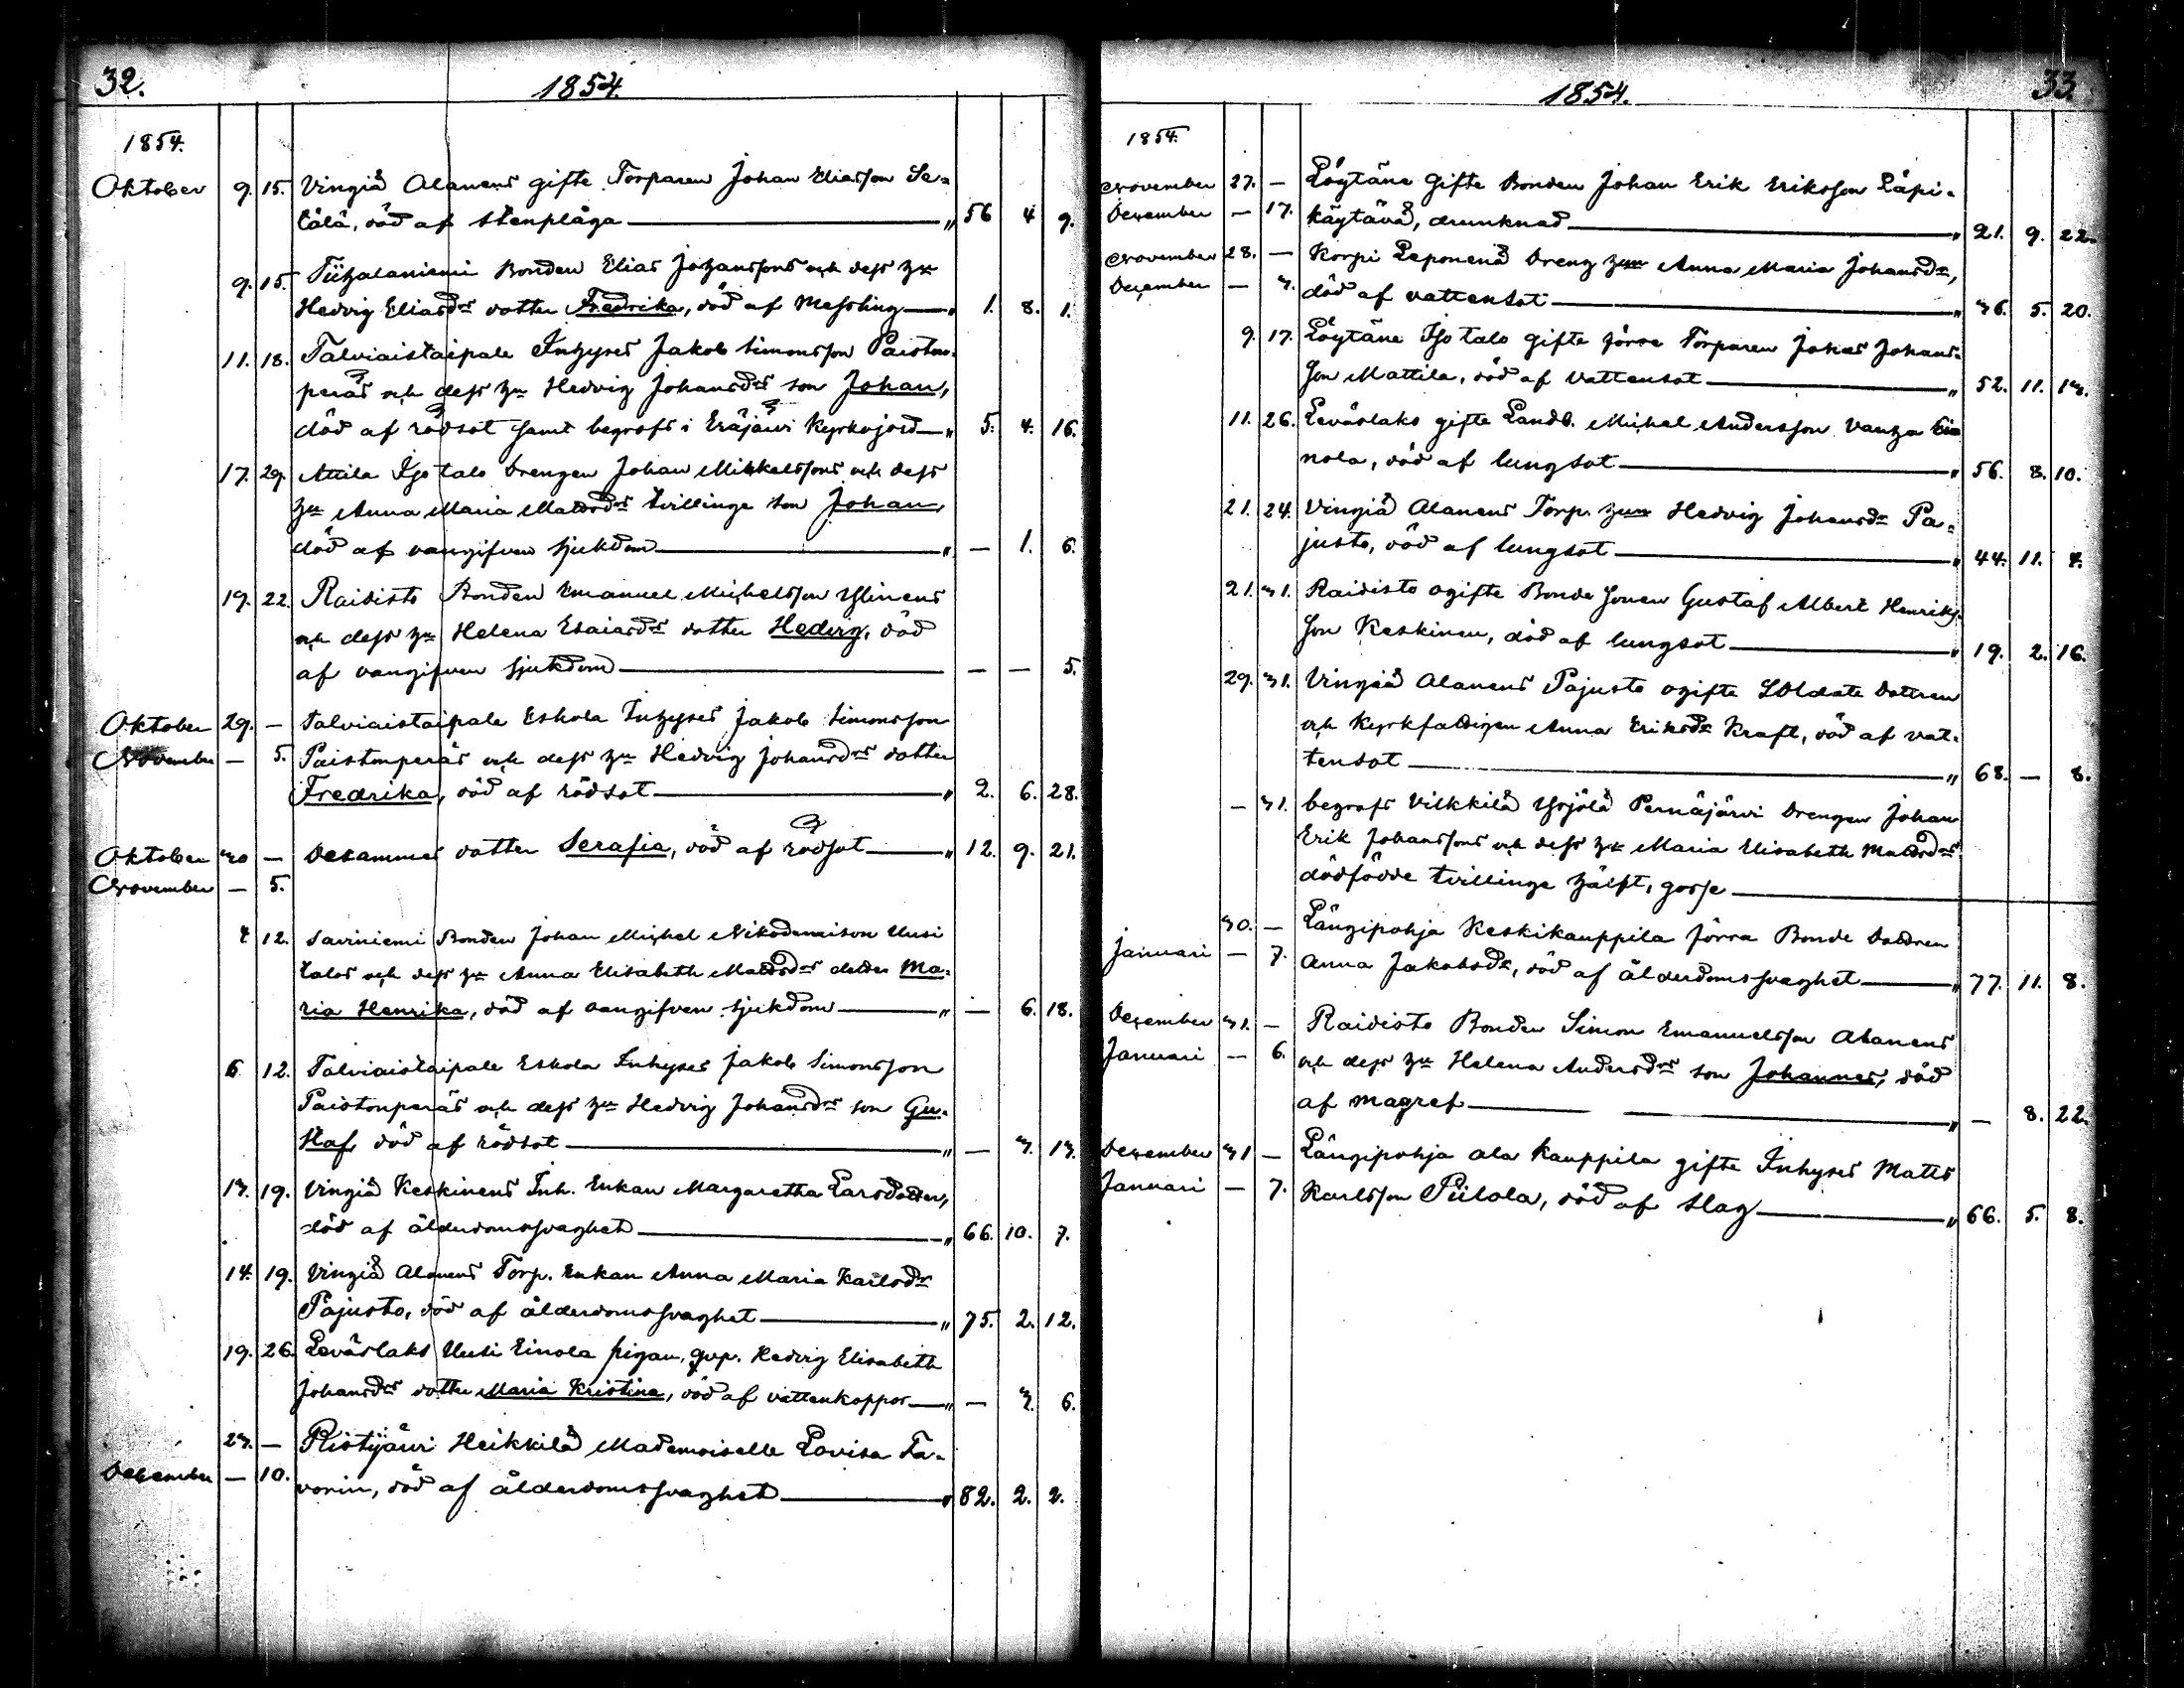 32.
1854.
1854.
Oktober 9. 15. Vingiä Alanens gifte Torparen Johan Eliasson Se-
tälä, död af stenplåga — " 56 4 9.
9. 15. Tiihalaniemi Bonden Elias Johanssons och dess hu
Hedvig Eliasdrs dotter Fredrika, död af Messling — " 1. 8. 1.
11. 18. Talviaistaipale Inhyses Jakob Simonsson Paiston-
peräs och dess hu Hedvig Johansdrs son Johan,
död af rödsot samt begrafs i Eräjärvi Kyrkojord — " 5. 4. 16.
17. 29. Attila Iso talo Drengen Johan Mikkelssons och dess
hu Anna Maria Matsdrs tvillinge son Johan,
död af oangifven sjukdom — " — 1. 6.
19. 22. Raidisto Bonden Emanuel Michelsson Ylinens
och dess hu Helena Esaiasdrs dotter Hedvig, död
af oangifven sjukdom — — — 5.
Oktober 29. — Talviaistaipale Eskola Inhyses Jakob Simonsson
November — 5. Paistonperäs och dess hu Hedvig Johansdrs dotter
Fredrika, död af rödsot — " 2. 6. 28.
Oktober 30 — Desammes dotter Serafia, död af rödsot — " 12. 9. 21.
November — 5.
4 12. Saviniemi Bonden Johan Michel Nikodemison Uusi
talos och dess hu Anna Elisabeth Matsdrs dotter Ma-
ria Henrika, död af oangifven sjukdom — " — 6. 18.
6 12. Talviaistaipale Eskola Inhyses Jakob Simonsson
Paistonperäs och dess hu Hedvig Johansdrs son Gu-
staf, död af rödsot — " — 3. 13.
13. 19. Vingiä Keskinens Inh. Enkan Margaretha Larsdotter,
död af ålderdomssvaghet — " 66. 10. 7.
14. 19. Vingiä Alanens Torp. Enkan Anna Maria Karlsdr
Pajusto, död af ålderdomssvaghet — " 75. 2. 12.
19. 26. Leväslaks Uusi Einola pigan, qvp. Hedvig Elisabeth
Johansdrs dotter Maria Kristina, död af vattenkoppor — " — 3. 6.
23. — Ristijärvi Heikkilä Mademoiselle Lovisa Fa-
December — 10. vorin, död af ålderdomssvaghet — " 82. 2. 2.
33.
1854.
1854.
November 27. — Löytäne Gifte Bonden Johan Erik Eriksson Läpi-
December — 17. käytävä, drunknad — " 21. 9. 22.
November 28. — Korpi Leponens Dreng hun Anna Maria Johansdr,
December — 3. död af vattensot — " 36. 5. 20.
9. 17. Löytäne Iso talo gifte förre Torparen Johan Johans-
son Mattila, död af Vattensot — " 52. 11. 13.
11. 26. Leväslaks gifte Landb. Michel Andersson Vanha Ei-
nola, död af lungsot — " 56. 8. 10.
21. 24. Vingiä Alanens Torp. hun Hedvig Johansdr Pa-
justo, död af lungsot — " 44. 11. 4.
21. 31. Raidisto ogifte Bonde Sonen Gustaf Albert Henriks-
son Keskinen, död af lungsot — " 19. 2. 16.
29. 31. Vingiä Alanens Pajusto ogifte Soldate Dottren
och Kyrkfattigen Anna Eriksdr Kraft, död af vat-
tensot — " 68. — 8.
— 31. begrafs Vilkkilä Yrjölä Pernäjärvi Drengen Johan
Erik Johanssons och dess hu Maria Elisabeth Matsdrs
dödfödde tvillinge hälft, gosse —
30. — Längipohja Keskikauppila förra Bonde Dottren
Januari — 7. Anna Jakobsdr, död af ålderdomssvaghet — " 77. 11. 8.
December 31. — Raidisto Bonden Simon Emanuelsson Alanens
Januari — 6. och dess hu Helena Andersdrs son Johannes, död
af magref — " — 8. 22.
December 31 — Längipohja ala Kauppila gifte Inhyses Matts
Januari — 7. Karlsson Piilola, död af slag — " 66. 5. 8.